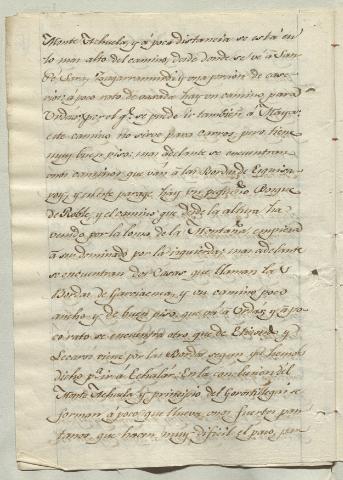 Monte Achuela, y á poca distancia se está en
lo mas alto del camino, desde donde se vé á San
Pé, Sara, Zugarramurdi y una porcion de case-
rios: á poco rato de vajada hay un camino para
Urdax, por el q.e se puede ir tambien á Maya:
este camino no sirve para carros, pero tiene
muy buen piso; mas adelante se encuentran
unos caminos que van á las Bordas de
y en este parage hay un pequeño Bosque
de Roble, y el camino que desde la altura ha
venido por la loma de la Montaña, empieza
á ser dominado por la izquierda; mas adelante
se encuentran dos Casas que llaman la
Bordas de Garciacena, y un camino poco
ancho y de buen piso, que va á Urdax, y á po-
co rato se encuentra otro que de y
Lecaroz viene por las Bordas segun que hemos
dicho p.a ir á Echalar. En la conclusion del
Monte Achuela y principio del se
forman á poco que llueva unos fuertes pan-
tanos, que hacen muy dificil el paso, por